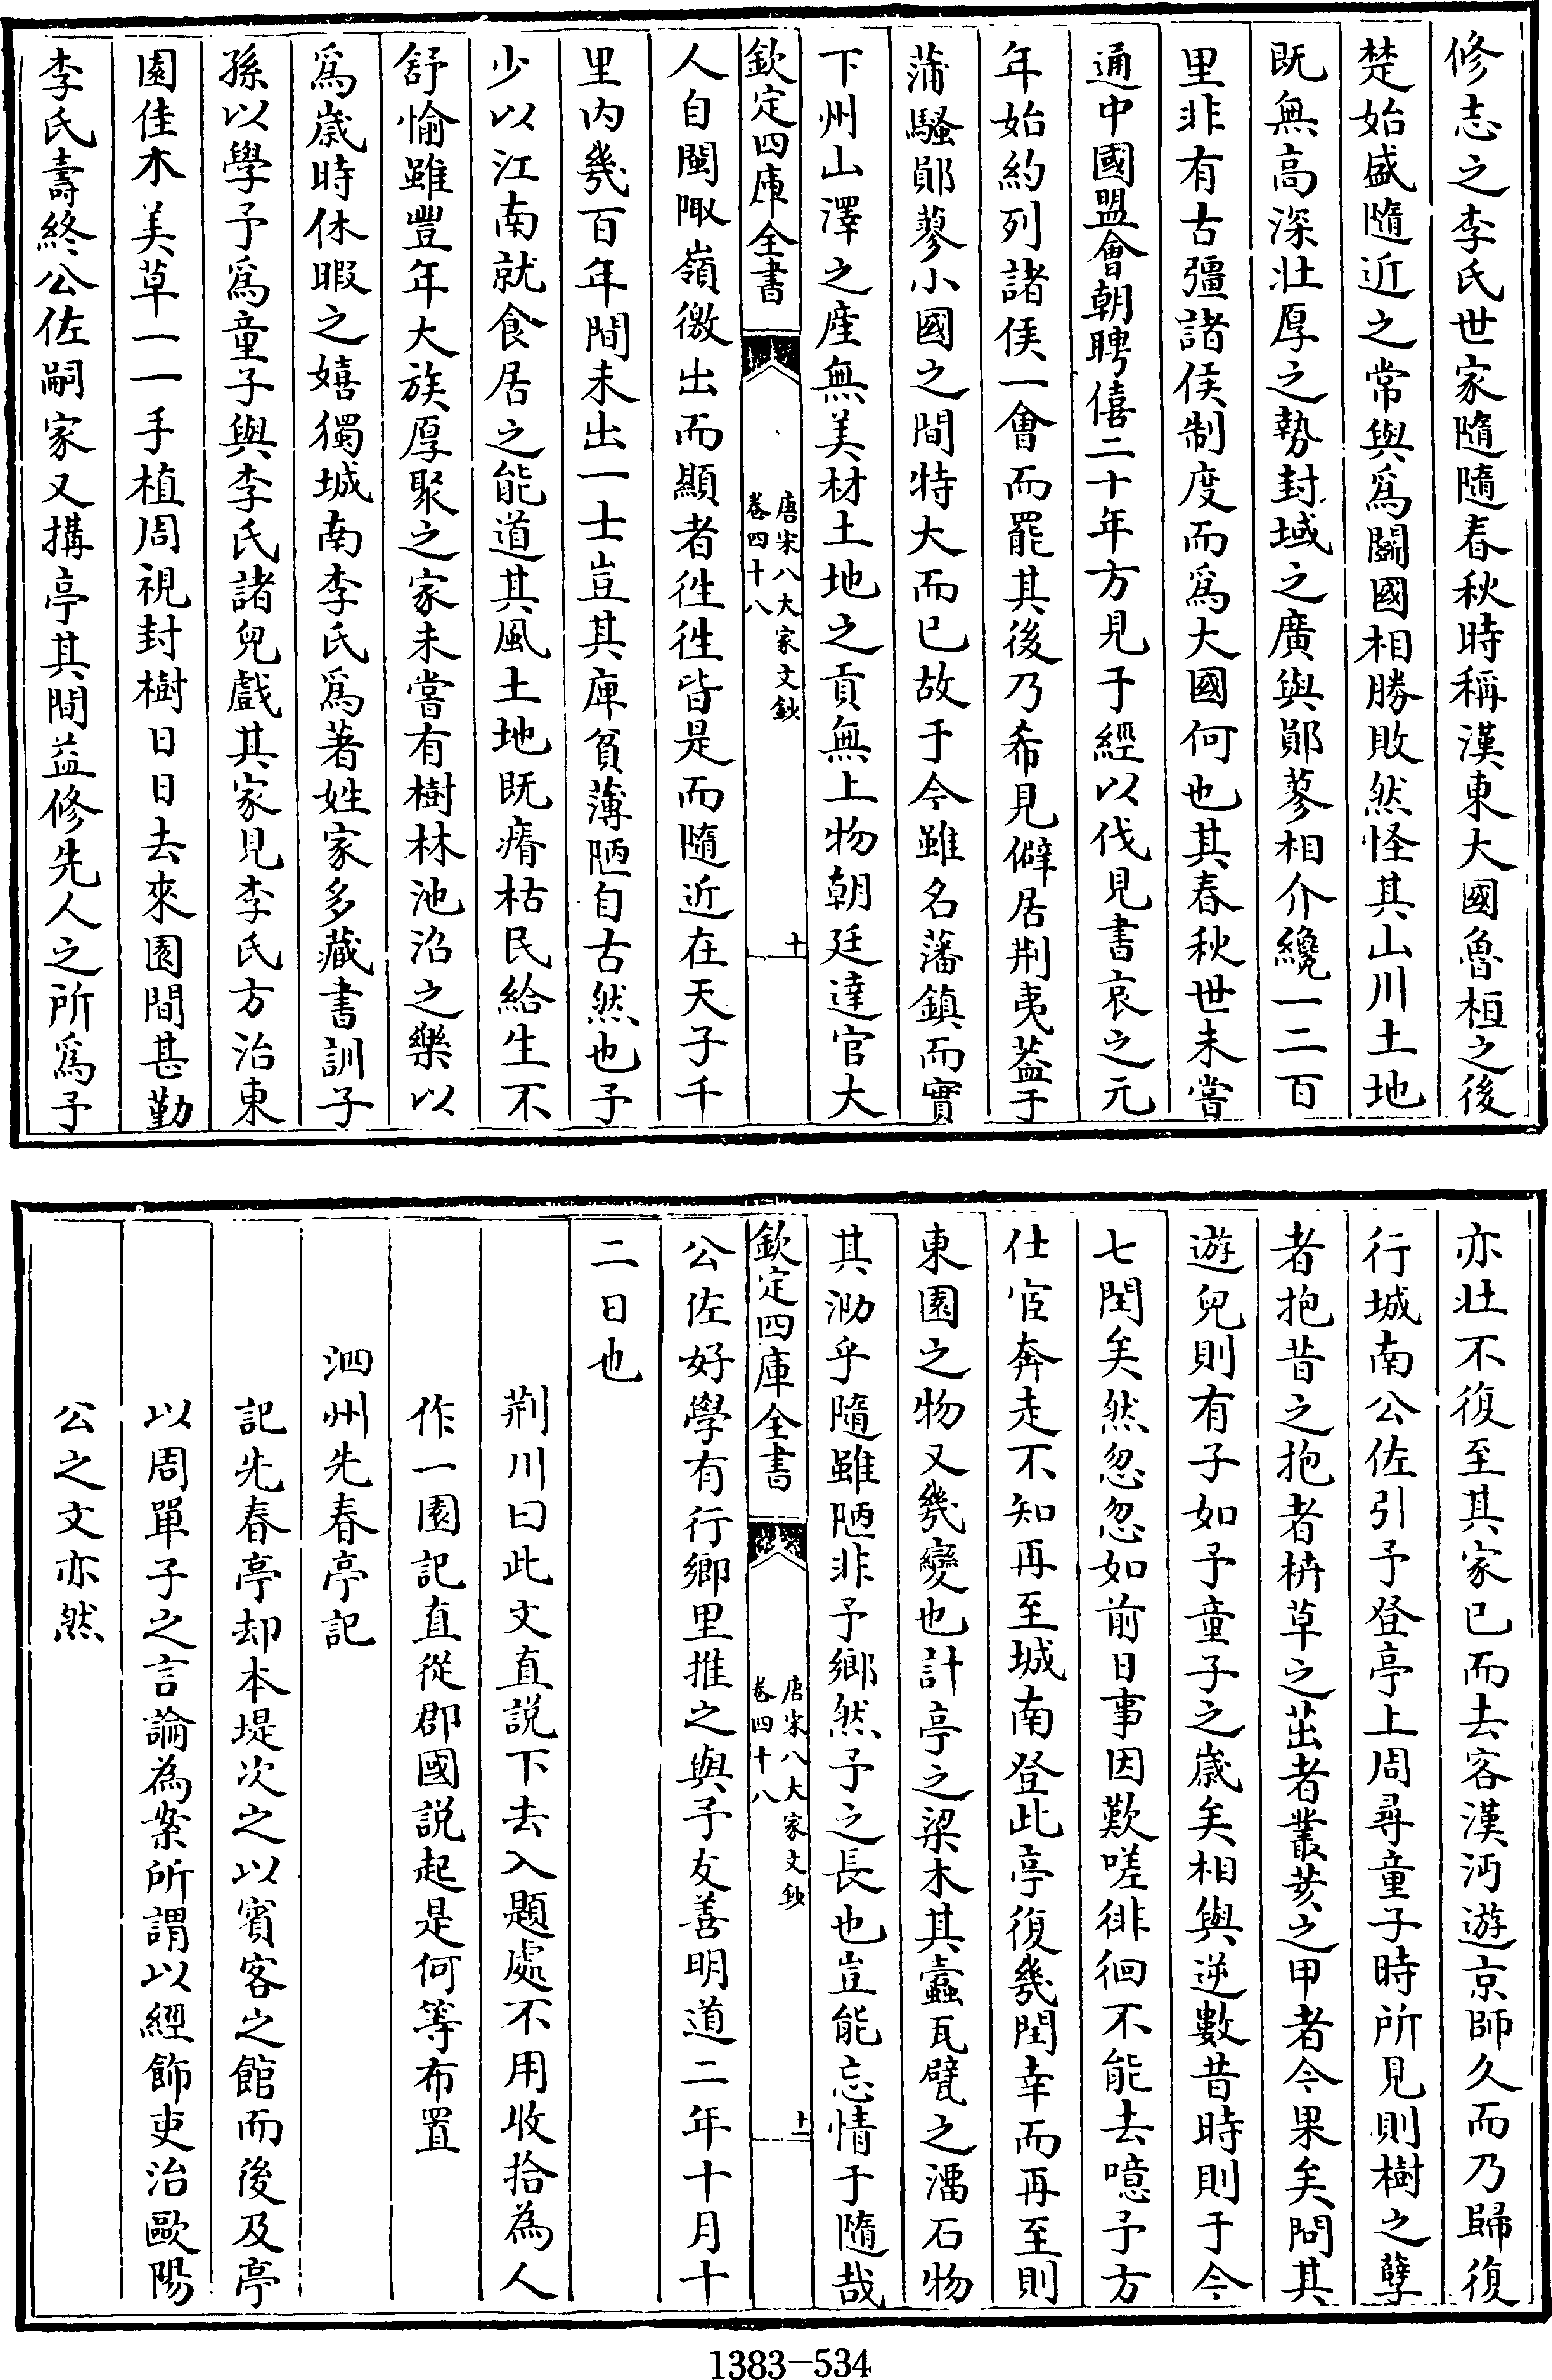 修志之李氏世家隨隨春秋時稱漢東大國魯桓之後
楚始盛隨近之常與爲鬬國相勝敗然怪其山川土地
既無高深壯厚之勢封域之廣與鄖蓼相介纔一二百
里非有古彊諸侯制度而爲大國何也其春秋世未嘗
通中國盟會朝聘僖二十年方見于經以伐見書哀之元
年始約列諸侯一會而罷其後乃希見僻居荆夷蓋于
蒲騷鄖蓼小國之間特大而已故于今雖名藩鎮而實
下州山澤之産無美材土地之貢無上物朝廷達官大
欽定四庫全書
唐宋八大家文鈔
卷四十八
十
人自閩陬嶺徼出而顯者徃徃皆是而隨近在天子千
里内幾百年間未出一士豈其庳貧薄陋自古然也予
少以江南就食居之能道其風土地既瘠枯民給生不
舒愉雖豐年大族厚聚之家未嘗有樹林池沼之樂以
爲歲時休暇之嬉獨城南李氏爲著姓家多藏書訓子
孫以學予爲童子與李氏諸兒戲其家見李氏方治東
園佳木美草一一手植周視封樹日日去來園間甚勤
李氏壽終公佐嗣家又搆亭其間益修先人之所爲予
亦壯不復至其家已而去客漢沔遊京師久而乃歸復
行城南公佐引予登亭上周尋童子時所見則樹之孽
者抱昔之抱者枿草之茁者叢荄之甲者今果矣問其
遊兒則有子如予童子之歲矣相與逆數昔時則于今
七閏矣然忽忽如前日事因歎嗟徘徊不能去噫予方
仕宦奔走不知再至城南登此亭復幾閏幸而再至則
東園之物又幾變也計亭之梁木其蠹瓦甓之溜石物
其泐乎隨雖陋非予鄉然予之長也豈能忘情于隨哉
欽定四庫全書
唐宋八大家文鈔
卷四十八
十一
公佐好學有行鄉里推之與予友善明道二年十月十
二日也
荆川曰此文直説下去入題處不用收拾為人
作一園記直從郡國説起是何等布置
泗州先春亭記
記先春亭却本堤次之以賓客之館而後及亭
以周單子之言論為案所謂以經飾吏治歐陽
公之文亦然
1383-534